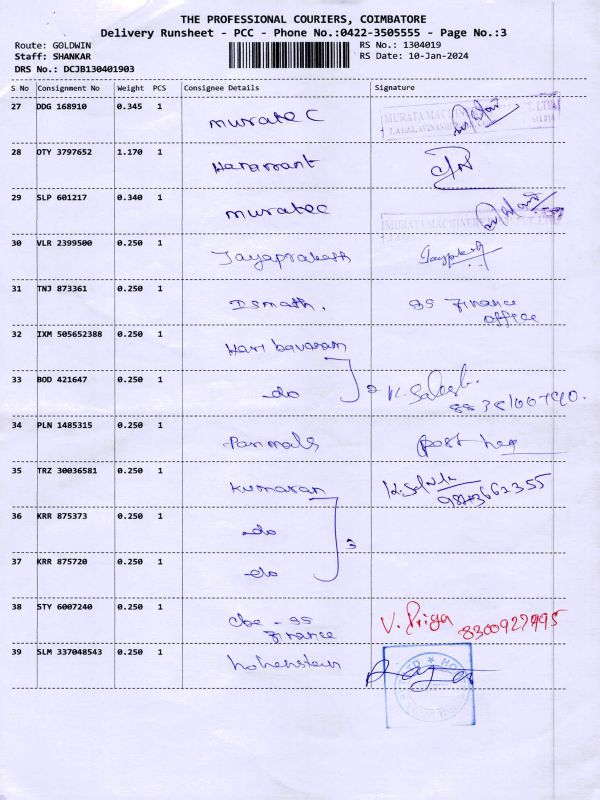 THE PROFESSIONAL COURIERS, COIMBATORE
Delivery Runsheet - PCC - Phone No.:0422-3505555 - Page No.:3
Route: GOLDWIN
Staff: SHANKAR
DRS No.: DCJB130401903
RS No.: 1304019
RS Date: 10-Jan-2024
S No Consignment No Weight PCS Consignee Details Signature
27 DDG 168910 0.345 1 muratec
28 OTY 3797652 1.170 1
29 SLP 601217 0.340 1 muratec
30 VLR 2399500 0.250 1 Jayaprakash
31 TNJ 873361 0.250 1 Ismath. gs Finance
office
32 IXM 505652388 0.250 1 Hari bavanam
33 BOD 421647 0.250 1 -do 2
34 PLN 1485315 0.250 1 Parimala post
35 TRZ 30036581 0.250 1 Kumaran
36 KRR 875373 0.250 1 -do 3
37 KRR 875720 0.250 1 -do
38 STY 6007240 0.250 1 cbe - gs V. Priya
Finance
39 SLM 337048543 0.250 1 hohenstein